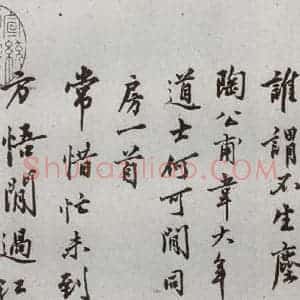 誰謂不生塵
陶公甫韋大年
道士何可閒同
房一首
常惜忙未到
方悟閒過江
Shufaziliao.com